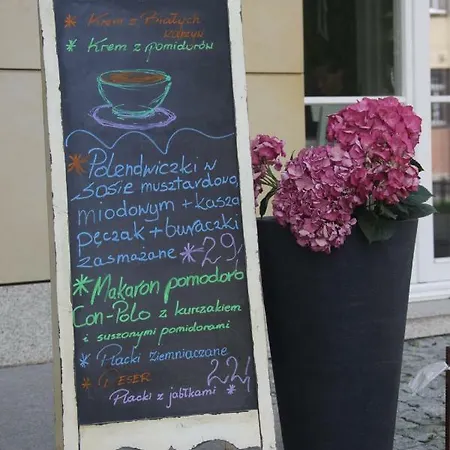 * Krem z Białych
warzyw
* Krem z pomidorów
* Polendwiczki w
sosie musztardowo
miodowym + kasza
pęczak + buraczki
zasmażane * 29
* Makaron pomodoro
Con-Polo z kurczakiem
i suszonymi pomidorami
* Placki ziemniaczane
* Deser 22
Placki z jabłkami *